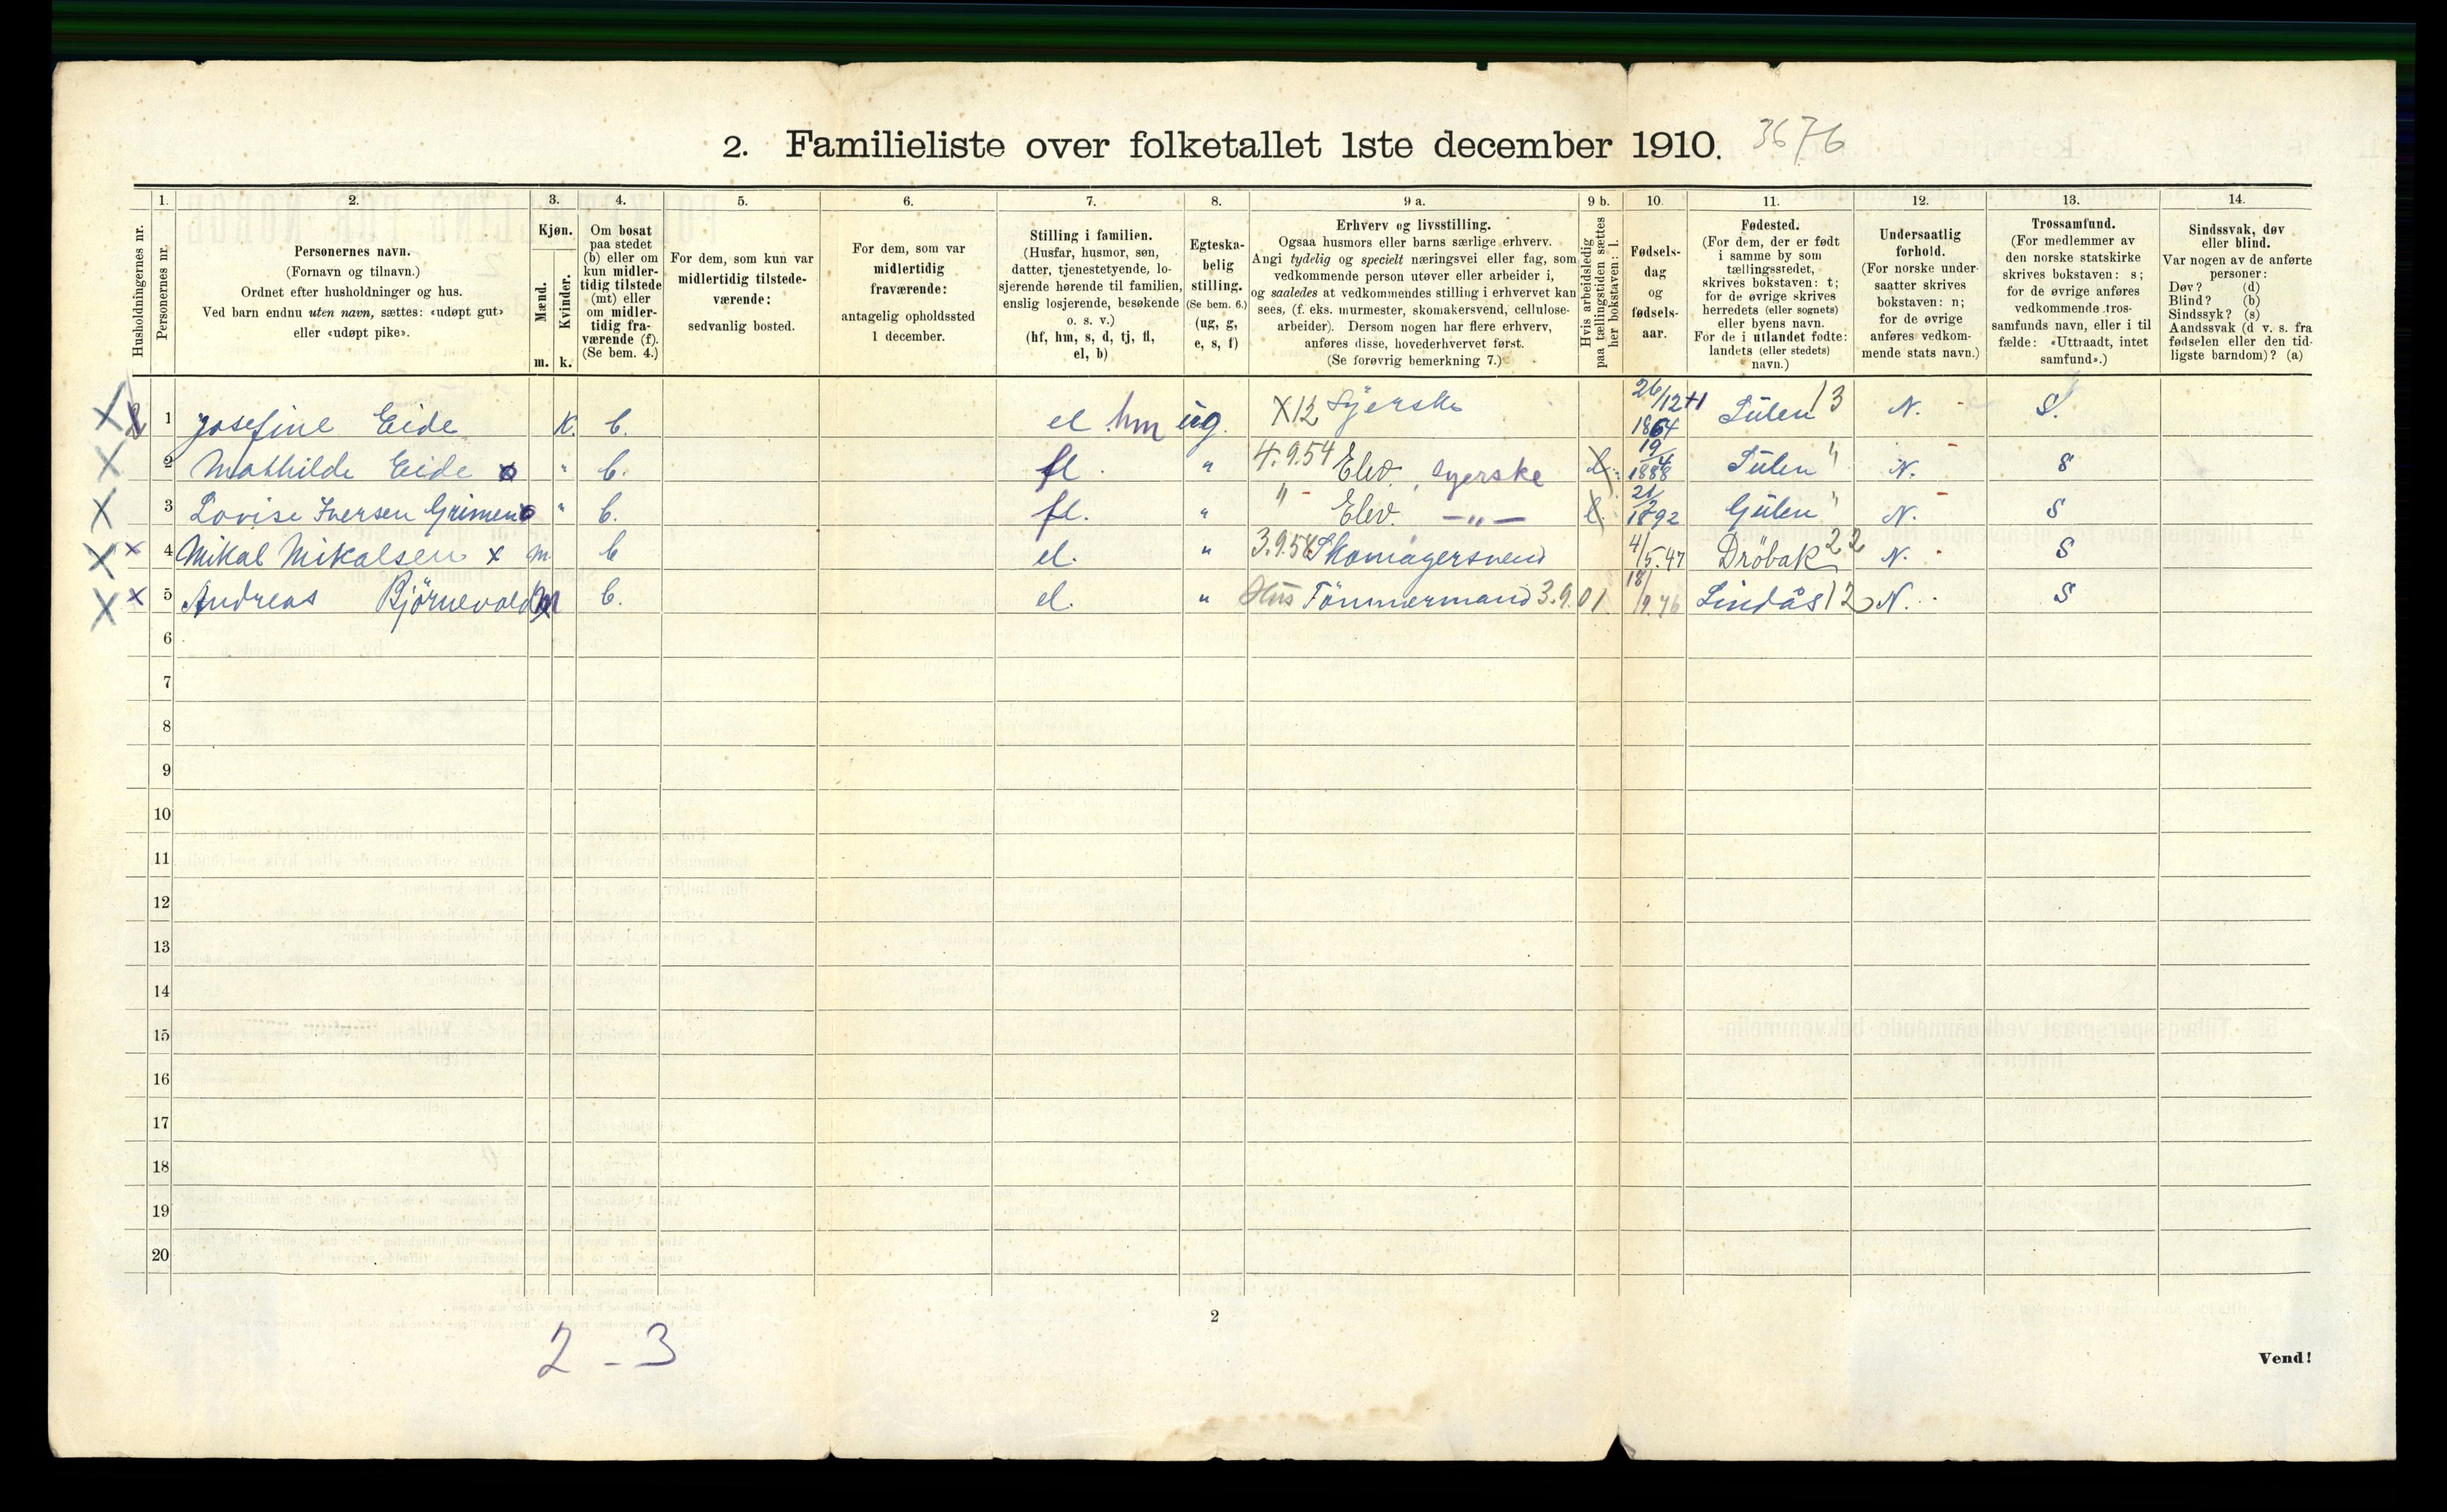 2. Familieliste over folketallet 1ste december 1910. 3676
Husholdningernes nr.
1. Personernes nr.
2. Personernes navn.
(Fornavn og tilnavn.)
Ordnet efter husholdninger og hus.
Ved barn endnu uten navn, sættes: «udøpt gut»
eller «udøpt pike».
3. Kjøn.
Mænd. Kvinder.
m. k.
4. Om bosat
paa stedet
(b) eller om
kun midler-
tidig tilstede
(mt) eller
om midler-
tidig fra-
værende (f).
(Se bem. 4.)
5. For dem, som kun var
midlertidig tilstede-
værende:
sedvanlig bosted.
6. For dem, som var
midlertidig
fraværende:
antagelig opholdssted
1 december.
7. Stilling i familien.
(Husfar, husmor, søn,
datter, tjenestetyende, lo-
sjerende hørende til familien,
enslig losjerende, besøkende
o. s. v.)
(hf, hm, s, d, tj, fl,
el, b)
8. Egteska-
belig
stilling.
(Se bem. 6.)
(ug, g,
e, s, f)
9 a. Erhverv og livsstilling.
Ogsaa husmors eller barns særlige erhverv.
Angi tydelig og specielt næringsvei eller fag, som
vedkommende person utøver eller arbeider i,
og saaledes at vedkommendes stilling i erhvervet kan
sees, (f. eks. murmester, skomakersvend, cellulose-
arbeider). Dersom nogen har flere erhverv,
anføres disse, hovederhvervet først.
(Se forøvrig bemerkning 7.)
9 b. Hvis arbeidsledig
paa tællingstiden sættes
her bokstaven: l.
10. Fødsels-
dag
og
fødsels-
aar.
11. Fødested.
(For dem, der er født
i samme by som
tællingsstedet,
skrives bokstaven: t;
for de øvrige skrives
herredets (eller sognets)
eller byens navn.
For de i utlandet fødte:
landets (eller stedets)
navn.)
12. Undersaatlig
forhold.
(For norske under-
saatter skrives
bokstaven: n;
for de øvrige
anføres vedkom-
mende stats navn.)
13. Trossamfund.
(For medlemmer av
den norske statskirke
skrives bokstaven: s;
for de øvrige anføres
vedkommende tros-
samfunds navn, eller i til-
fælde: «Uttraadt, intet
samfund».)
14. Sindssvak, døv
eller blind.
Var nogen av de anførte
personer:
Døv? (d)
Blind? (b)
Sindssyk? (s)
Aandssvak (d. v. s. fra
fødselen eller den tid-
ligste barndom)? (a)
X 1 Josefine Eide K. b. el hm ug X12 Syerske 26/12 1864 Gulen 13 N. S.
X 2 Mathilde Eide " b. fl. " 4.9.54 Elev, syerske l. 19/4 1888 Gulen " N. S
X 3 Lovise Iversen Grimen " b. fl. " " Elev. —"— l. 21/2 1892 Gulen " N. S
X x 4 Mikal Mikalsen x m b el. " 3.9.54 Skomagersvend 4/5.47 Dröbak 22 N. S
X x 5 Andreas Björnevold m b. el. " Hus Tömmermand 3.9.01 18/9.76 Lindås 12 N. S
6
7
8
9
10
11
12
13
14
15
16
17
18
19
20
2
2 - 3
Vend!